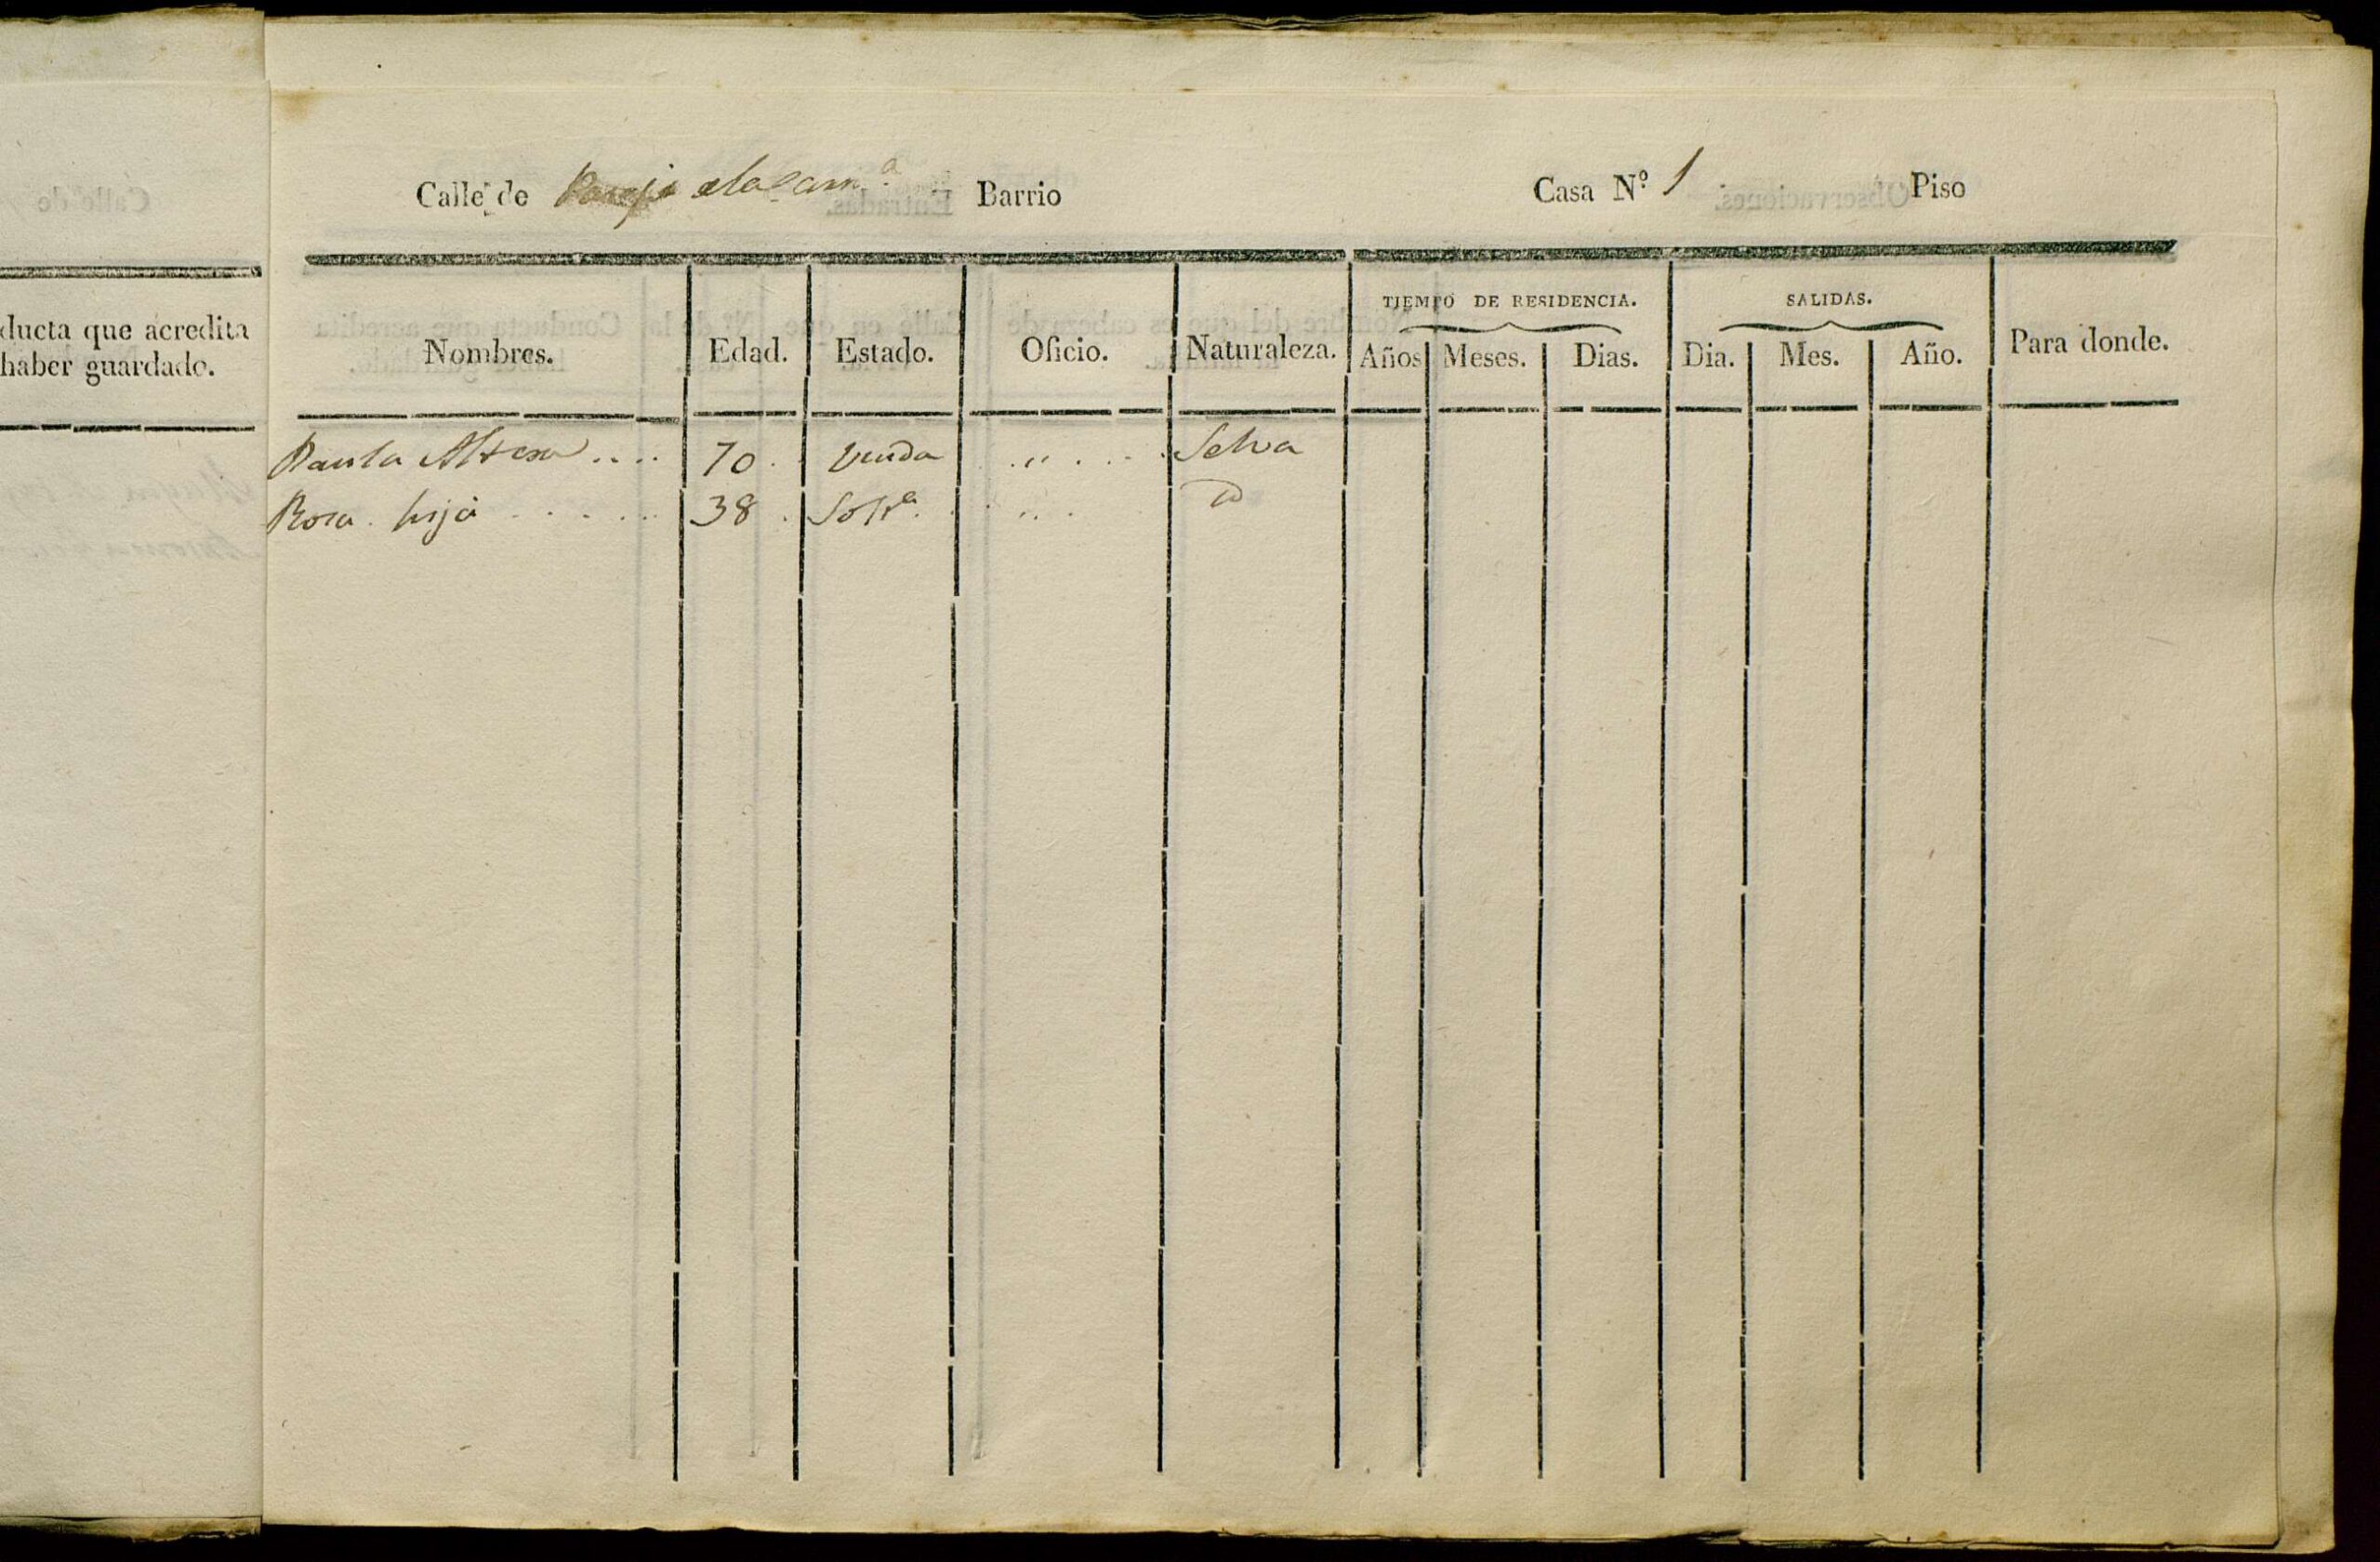 Calle de de la Carn.ª Barrio Casa N.º 1 Piso
ducta que acredita
haber guardado.
Nombres. Edad. Estado. Oficio. Naturaleza. TIEMPO DE RESIDENCIA. SALIDAS. Para donde.
Años Meses. Dias. Dia. Mes. Año.
Paula .... 70 . Viuda . ,, . . . . Selva
Rosa hija . . . . . 38 . Solt.ª . . . . . . D